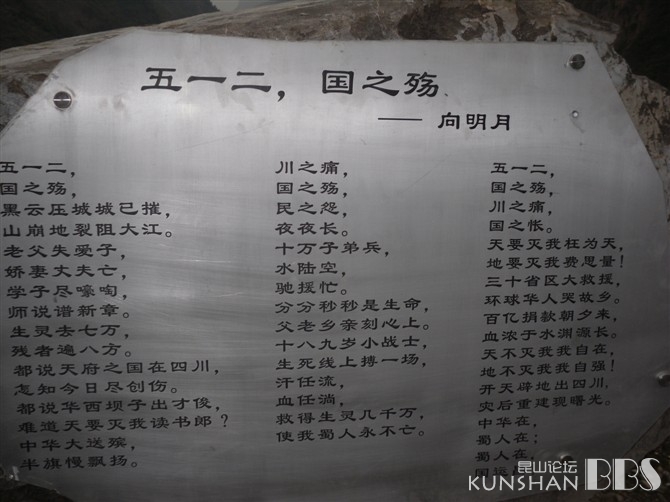 五一二，国之殇
—— 向明月
五一二，
国之殇，
黑云压城城已摧，
山崩地裂阻大江。
老父失爱子，
娇妻丈夫亡，
学子尽嚎啕，
师说谱新章。
生灵去七万，
残者遍八方。
都说天府之国在四川，
怎知今日尽创伤。
都说华西坝子出才俊，
难道天要灭我读书郎？
中华大送殡，
半旗慢飘扬。
川之痛，
国之殇，
民之怨，
夜夜长。
十万子弟兵，
水陆空，
驰援忙。
分分秒秒是生命，
父老乡亲刻心上。
十八九岁小战士，
生死线上搏一场，
汗任流，
血任淌，
救得生灵几千万，
使我蜀人永不亡。
五一二，
国之殇，
川之痛，
国之怅。
天要灭我枉为天，
地要灭我费思量！
三十省区大救援，
环球华人哭故乡。
百亿捐款朝夕来，
血浓于水渊源长。
天不灭我我自在，
地不灭我我自强！
开天辟地出四川，
灾后重建现曙光。
中华在，
蜀人在；
蜀人在，
国运
昆山论坛
KUNSHAN BBS